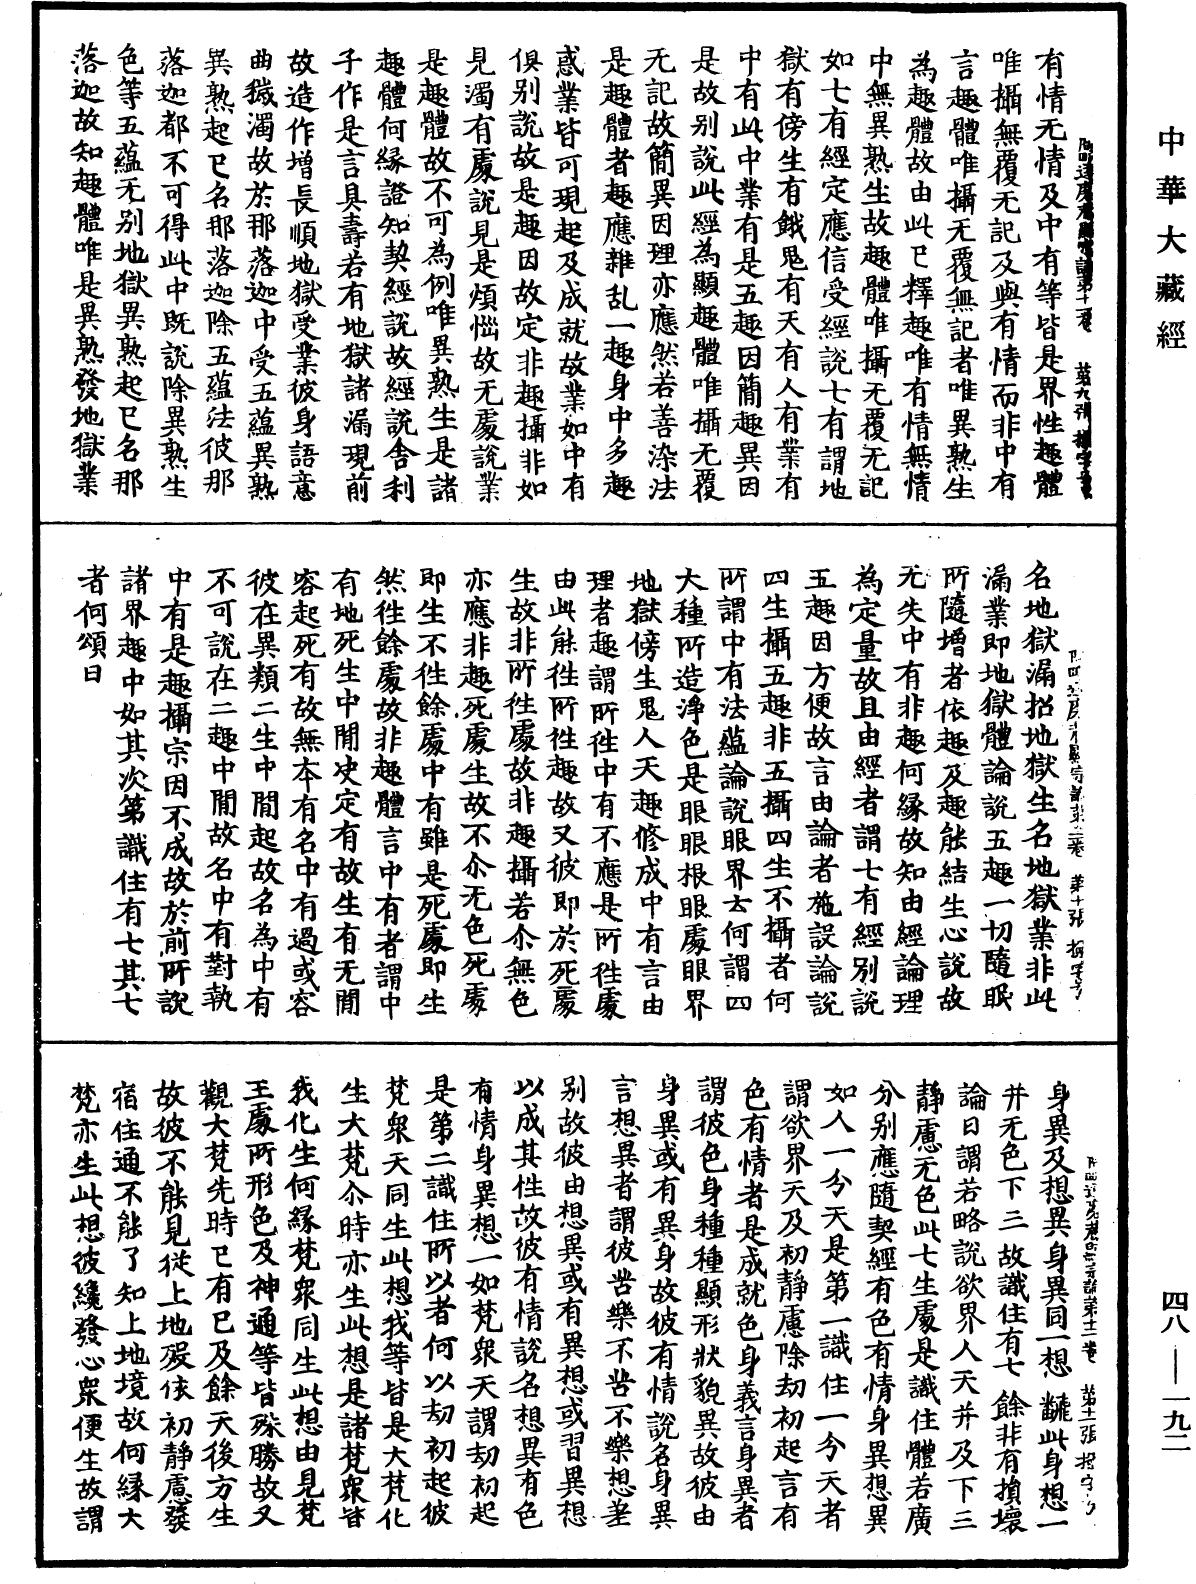 中華大藏經
有情无情及中有等皆是界性趣體
唯攝無覆无記及與有情而非中有
言趣體唯攝无覆無記者唯異熟生
為趣體故由此已釋趣唯有情無情
中無異熟生故趣體唯攝无覆无記
如七有經定應信受經說七有謂地
獄有傍生有餓鬼有天有人有業有
中有此中業有是五趣因簡趣異因
是故別說此經為顯趣體唯攝无覆
无記故簡異因理亦應然若善染法
是趣體者趣應雜乱一趣身中多趣
惑業皆可現起及成就故業如中有
俱別說故是趣因故定非趣攝非如
見濁有處說見是煩惱故无處說業
是趣體故不可為例唯異熟生是諸
趣體何緣證知契經說故經說舍利
子作是言具壽若有地獄諸漏現前
故造作增長順地獄受業彼身語意
曲穢濁故於那落迦中受五蘊異熟
異熟起已名那落迦除五蘊法彼那
落迦都不可得此中既說除異熟生
色等五蘊无別地獄異熟起已名那
落迦故知趣體唯是異熟發地獄業
名地獄漏招地獄生名地獄業非此
漏業即地獄體論說五趣一切隨眠
所隨增者依趣及趣能結生心說故
无失中有非趣何緣故知由經論理
為定量故且由經者謂七有經別說
五趣因方便故言由論者施設論說
四生攝五趣非五攝四生不攝者何
所謂中有法蘊論說眼界云何謂四
大種所造淨色是眼眼根眼處眼界
地獄傍生鬼人天趣修成中有言由
理者趣謂所往中有不應是所往處
由此能往所往趣故又彼即於死處
生故非所往處故非趣攝若尒無色
亦應非趣死處生故不尒无色死處
即生不往餘處中有雖是死處即生
然往餘處故非趣體言中有者謂中
有地死生中閒決定有故生有无閒
容起死有故無本有名中有過或容
彼在異類二生中閒起故名為中有
不可說在二趣中閒故名中有對執
中有是趣攝宗因不成故於前所說
諸界趣中如其次第識住有七其七
者何頌曰
身異及想異身異同一想 翻此身想一
并无色下三 故識住有七 餘非有損壞
論曰謂若略說欲界人天并及下三
靜慮无色此七生處是識住體若廣
分別應隨契經有色有情身異想異
如人一分天是第一識住一分天者
謂欲界天及初靜慮除劫初起言有
色有情者是成就色身義言身異者
謂彼色身種種顯形狀貌異故彼由
身異或有異身故彼有情說名身異
言想異者謂彼苦樂不苦不樂想差
別故彼由想異或有異想或習異想
以成其性故彼有情說名想異有色
有情身異想一如梵衆天謂劫初起
是第二識住所以者何以劫初起彼
梵衆天同生此想我等皆是大梵化
生大梵尒時亦生此想是諸梵衆皆
我化生何緣梵衆同生此想由見梵
王處所形色及神通等皆殊勝故又
觀大梵先時已有已及餘天後方生
故彼不能見從上地歿依初靜慮發
宿住通不能了知上地境故何緣大
梵亦生此想彼纔發心衆便生故謂
四八—一九二